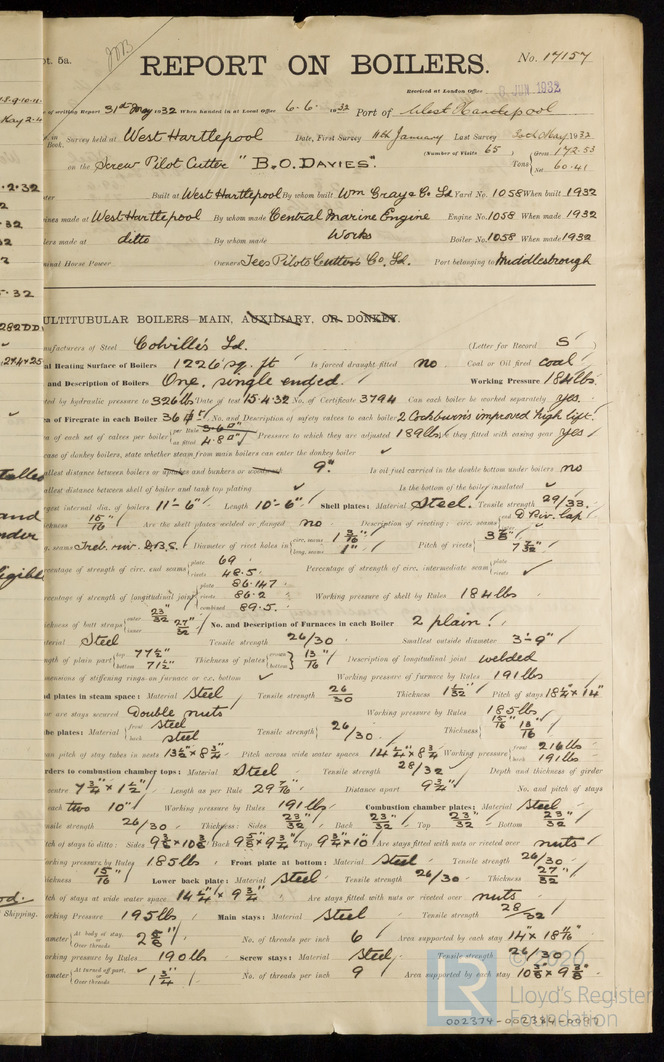 pt. 5a.
REPORT ON BOILERS.
No. 17157
Received at London Office JUN 1932
of writing Report 31st May 1932 When handed in at Local Office 6.6.1932 Port of West Hartlepool
in Book. Survey held at West Hartlepool Date, First Survey 11th January Last Survey May 1932
on the Screw Pilot Cutter "B.O. DAVIES". (Number of Visits 65) Tons {Gross 172.53 Net 60.41
Built at West Hartlepool By whom built Wm Gray & Co Ld Yard No. 1058 When built 1932
ines made at West Hartlepool By whom made Central Marine Engine Engine No. 1058 When made 1932
lers made at ditto By whom made Works Boiler No. 1058 When made 1932
minal Horse Power Owners Tees Pilots Cutters Co. Ld. Port belonging to Middlesbrough
ULTITUBULAR BOILERS—MAIN, AUXILIARY, OR DONKEY.
nufacturers of Steel Colville's Ld. (Letter for Record S)
al Heating Surface of Boilers 1226 sq. ft Is forced draught fitted no Coal or Oil fired coal
and Description of Boilers One, single ended. Working Pressure 184 lbs.
ted by hydraulic pressure to 326 lbs Date of test 15.4.32 No. of Certificate 3794 Can each boiler be worked separately yes.
ea of Firegrate in each Boiler 36 No. and Description of safety valves to each boiler 2 Cockburn's improved high lift.
ea of each set of valves per boiler {per Rule as fitted 4.8 Pressure to which they are adjusted 189 lbs Are they fitted with easing gear yes
ase of donkey boilers, state whether steam from main boilers can enter the donkey boiler ✓
allest distance between boilers or uptakes and bunkers or woodwork 9" Is oil fuel carried in the double bottom under boilers no
allest distance between shell of boiler and tank top plating ✓ Is the bottom of the boiler insulated ✓
rgest internal dia. of boilers 11'-6" Length 10'-6" Shell plates: Material Steel. Tensile strength 29/33.
hickness 15/16 Are the shell plates welded or flanged no Description of riveting: circ. seams {end D Riv. Lap
g. seams Treb. riv. D.B.S. Diameter of rivet holes in {circ. seams 1 3/16" long. seams 1" Pitch of rivets 7 7/32"
rcentage of strength of circ. end seams {plate 69 rivets 48.5 Percentage of strength of circ. intermediate seam {plate rivets ✓
rcentage of strength of longitudinal joint {plate 86.147 rivets 86.2 combined 89.5. Working pressure of shell by Rules 184 lbs
ickness of butt straps {outer 23/32" inner 27/32" No. and Description of Furnaces in each Boiler 2 plain.
aterial Steel Tensile strength 26/30 Smallest outside diameter 3'-9"
ngth of plain part {top 77 1/2" bottom 71 1/2" Thickness of plates {crown bottom} 13/16" Description of longitudinal joint welded
mensions of stiffening rings on furnace or c.c. bottom ✓ Working pressure of furnace by Rules 191 lbs
nd plates in steam space: Material Steel Tensile strength 26/30 Thickness 1 1/32" Pitch of stays 18 1/4" x 14"
w are stays secured Double nuts Working pressure by Rules 185 lbs
be plates: Material {front Steel back steel Tensile strength 26/30 Thickness {15/16" 13/16"
an pitch of stay tubes in nests 13 1/2" x 8 3/4" Pitch across wide water spaces 14 1/4" x 8 3/4" Working pressure {front 216 lbs back 191 lbs
rders to combustion chamber tops: Material Steel Tensile strength 28/32 Depth and thickness of girder
centre 7 3/4" x 1 1/2" Length as per Rule 29 7/16" Distance apart 9 3/4" No. and pitch of stays
each two 10" Working pressure by Rules 191 lbs Combustion chamber plates: Material Steel
nsile strength 26/30 Thickness: Sides 23/32" Back 23/32" Top 23/32" Bottom 23/32"
tch of stays to ditto: Sides 9 3/8" x 10 3/8" Back 9 5/8" x 9 3/4" Top 9 3/4" x 10" Are stays fitted with nuts or riveted over nuts
orking pressure by Rules 185 lbs Front plate at bottom: Material Steel Tensile strength 26/30
hickness 15/16" Lower back plate: Material Steel Tensile strength 26/30 Thickness 27/32"
tch of stays at wide water space 14 1/4" x 9 3/4" Are stays fitted with nuts or riveted over nuts
orking Pressure 195 lbs Main stays: Material Steel Tensile strength 28/32
ameter {At body of stay, or Over threads 2 5/8" No. of threads per inch 6 Area supported by each stay 14" x 18 11/16"
orking pressure by Rules 190 lbs Screw stays: Material Steel Tensile strength 26/30
ameter {At turned off part, or Over threads ✓ 1 3/4" No. of threads per inch 9 Area supported by each stay 10 3/8" x 9 3/8"
© 2020
LR Lloyd's Register Foundation
002374-002384-0097